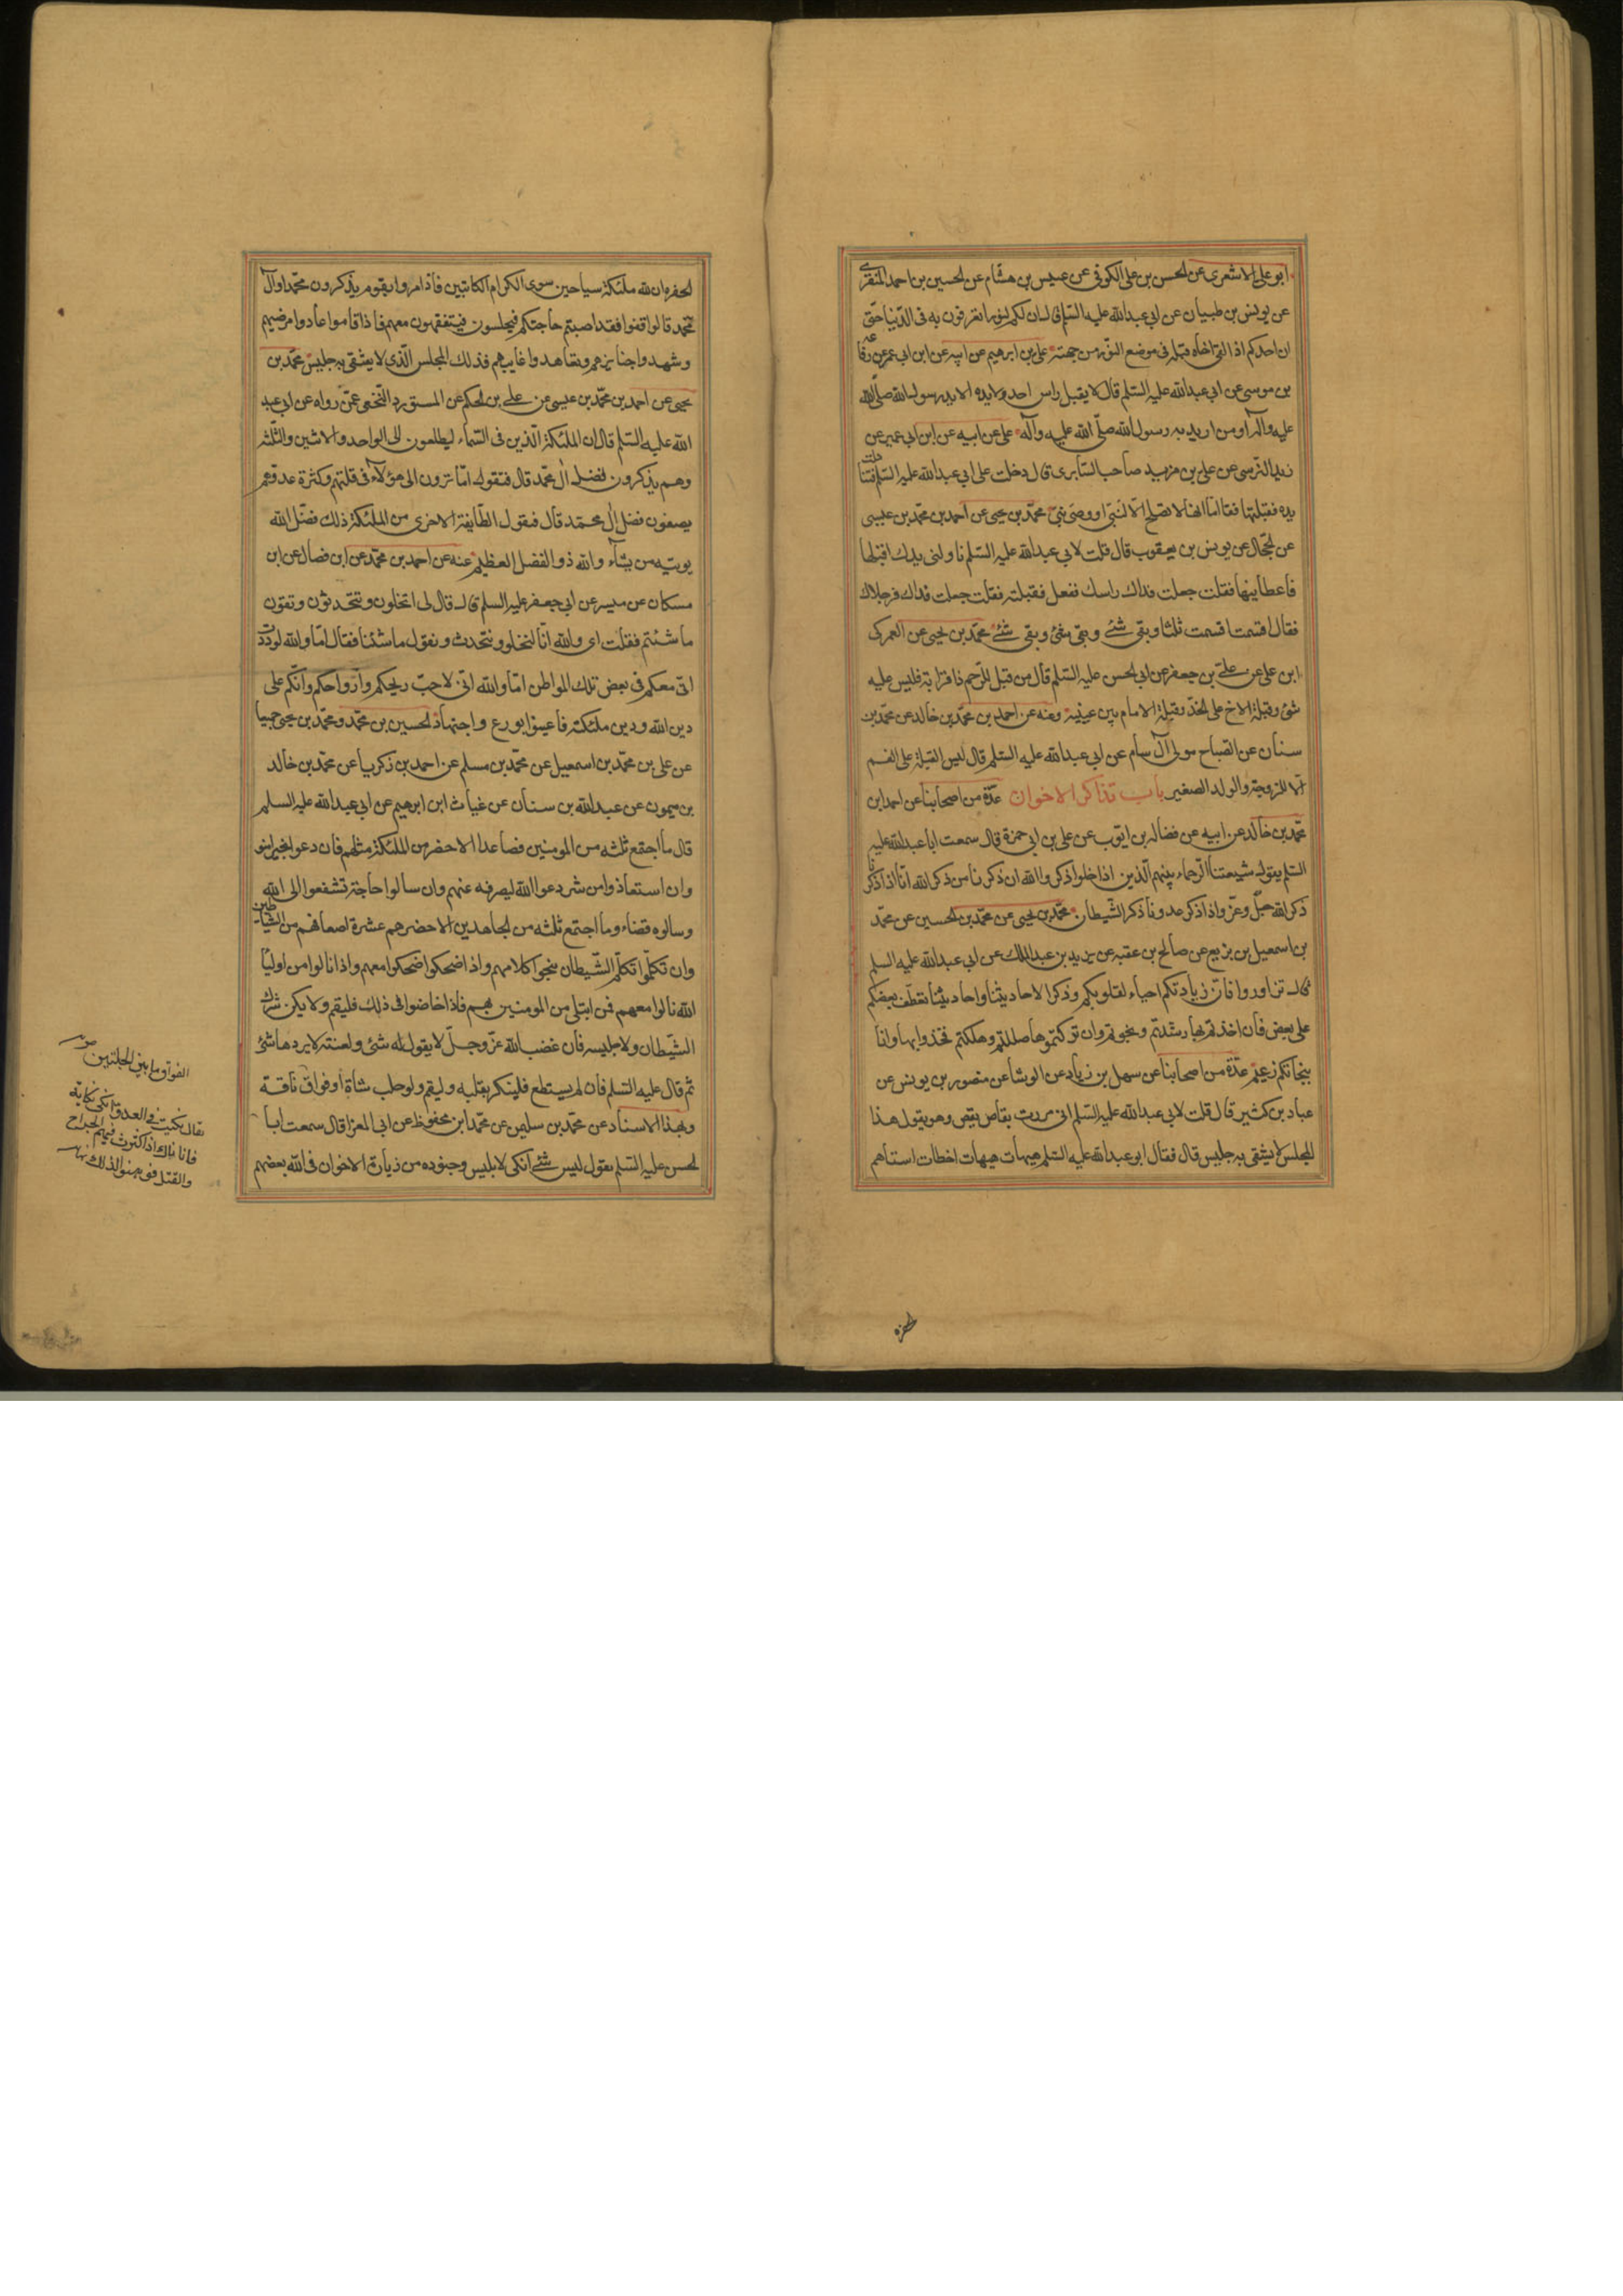 ابو علی الاشعری عن الحسن بن علی الکوفی عن عبیس بن هشام عن الحسین بن احمد المنقری
عن یونس بن ظبیان عن ابی عبدالله علیه السّلم قال ان لکم لنورا تعرفون به فی الدّنیا حتّی
ان احدکم اذا لقی اخاه قبّله فی موضع النّور من جبهته علی بن ابرهیم عن ابیه عن ابن ابی عمیر عن رفاعة
بن موسی عن ابی عبدالله علیه السّلم قال لا یقبل راس احد ولا یده الا ید رسول الله صلّی الله
علیه وآله او من ارید به رسول الله صلّی الله علیه وآله علی عن ابیه عن ابن ابی عمیر عن
زید النّرسی عن علی بن مزید صاحب السّابری قال دخلت علی ابی عبدالله علیه السّلم فتناولت
یده فقبّلتها فقال اما انها لا تصلح الّا لنبیّ او وصیّ نبیّ محمّد بن یحیی عن احمد بن محمّد بن عیسی
عن الحجّال عن یونس بن یعقوب قال قلت لابی عبدالله علیه السّلم ناولنی یدک اقبّلها
فاعطانیها فقلت جعلت فداک راسک ففعل فقبّلته فقلت جعلت فداک فرجلاک
فقال اقسمت اقسمت ثلثا وبقی شئ وبقی شئ وبقی شئ محمّد بن یحیی عن العمرکی
ابن علی عن علیّ بن جعفر عن ابی الحسن علیه السّلم قال من قبّل للرّحم ذا قرابة فلیس علیه
شئ وقبلة الاخ علی الخدّ وقبلة الامام بین عینیه وعنه عن احمد بن محمّد بن خالد عن محمّد بن
سنان عن الصّباح مولی آل سام عن ابی عبدالله علیه السّلم قال لیس القبلة علی الفم
الّا للزوجة والولد الصغیر باب تذاکر الاخوان عدّة من اصحابنا عن احمد ابن
محمّد بن خالد عن ابیه عن فضالة بن ایّوب عن علی بن ابی حمزة قال سمعت ابا عبدالله علیه
السّلم یقول شیعتنا الرّحماء بینهم الّذین اذا خلوا ذکروا الله ان ذکرنا من ذکر الله انّا اذا ذکرنا
ذکر الله جلّ وعزّ واذا ذکر عدونا ذکر الشّیطان محمّد بن یحیی عن محمّد بن الحسین عن محمّد
بن اسمعیل بن بزیع عن صالح بن عقبه عن یزید بن عبدالملک عن ابی عبدالله علیه السلم
قال تزاوروا فانّ زیارتکم احیاء لقلوبکم وذکرا لاحادیثنا واحادیثنا تعطّف بعضکم
علی بعض فان اخذتم بها رشدتم ونجوتم وان ترکتموها ضللتم وهلکتم فخذوا بها وانا
بنجاتکم زعیم عدّة من اصحابنا عن سهل بن زیاد عن الوشا عن منصور بن یونس عن
عباد بن کثیر قال قلت لابی عبدالله علیه السّلم انی مررت بقاص یقص وهو یقول هذا
المجلس لا یشقی به جلیس قال فقال ابو عبدالله علیه السّلم هیهات هیهات اخطات استاهم
الحفره ان لله ملئکة سیاحین سوی الکرام الکاتبین فاذا مروا بقوم یذکرون محمّدا وآل
محمّد قالوا قفوا فقد اصبتم حاجتکم فیجلسون فیتفقهون معهم فاذا قاموا عادوا مرضیهم
وشهدوا جنایزهم وتعاهدوا غایبهم فذلک المجلس الّذی لا یشقی به جلیس محمّد بن
یحیی عن احمد بن محمّد بن عیسی عن علی بن الحکم عن المستورد النّخعی عمّن رواه عن ابی عبد
الله علیه السّلم قال ان الملئکة الّذین فی السّماء لیطلعون الی الواحد والاثنین والثّلثه
وهم یذکرون فضل آل محمّد قال فتقول اما ترون الی هؤلآء فی قلتهم وکثرة عدوّهم
یصفون فضل آل محمّد قال فتقول الطّایفة الاخری من الملئکة ذلک فضل الله
یوتیه من یشآء والله ذو الفضل العظیم عنه عن احمد بن محمّد عن ابن فضال عن ابن
مسکان عن میسر عن ابی جعفر علیه السلم قال قال لی اتخلون وتتحدثون وتقولون
ما شئتم فقلت ای والله انّا لنخلو ونتحدث ونقول ما شئنا فقال اما والله لوددت
انّی معکم فی بعض تلک المواطن اما والله انّی لاحبّ ریحکم وارواحکم وانّکم علی
دین الله ودین ملئکته فاعینوا بورع واجتهاد الحسین بن محمّد ومحمّد بن یحیی جمیعا
عن علی بن محمّد بن اسمعیل عن محمّد بن مسلم عن احمد بن زکریا عن محمّد بن خالد
بن میمون عن عبدالله بن سنان عن غیاث ابن ابرهیم عن ابی عبدالله علیه السلم
قال ما اجتمع ثلثه من المومنین فصاعدا الا حضر من الملئکة مثلهم فان دعوا بخیر امنوا
وان استعاذوا من شر دعوا الله لیصرفه عنهم وان سالوا حاجة تشفعوا الی الله
وسالوه قضاء وما اجتمع ثلثه من الجاهدین الا حضرهم عشرة اضعافهم من الشیاطین
وان تکلّموا تکلّم الشّیطان بنحو کلامهم واذا ضحکوا ضحکوا معهم واذا نالوا من اولیاء
الله نالوا معهم فمن ابتلی من المومنین بهم فاذا خاضوا فی ذلک فلیقم ولا یکن شرک
الشّیطان ولا جلیسه فان غضب الله عزّ وجلّ لا یقوم له شئ ولعنته لا یردها شئ
ثم قال علیه السّلم فان لم یستطع فلینکر بقلبه ولیقم ولو حلب شاة او فواق ناقة
وبهذا الاسناد عن محمّد بن سلیمن عن محمّد ابن محفوظ عن ابی المعزا قال سمعت ابا
الحسن علیه السّلم یقول لیس شئ انکی لابلیس وجنوده من زیارة الاخوان فی الله بعضهم
الفواق ما بین الحلبتین
یقال نکیت فی العدو انکی نکایة
فانا ناک اذا اکثرت فیهم الجراح
والقتل فوهنوا لذلک نهایه